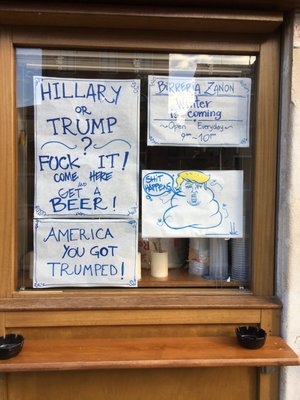 HILLARY
OR
TRUMP
?
FUCK IT!
COME HERE
AND
GET A
BEER!
BIRRERIA ZANON
Winter
is coming
Open Everyday
SHIT
HAPPENS
AMERICA
YOU GOT
TRUMPED!